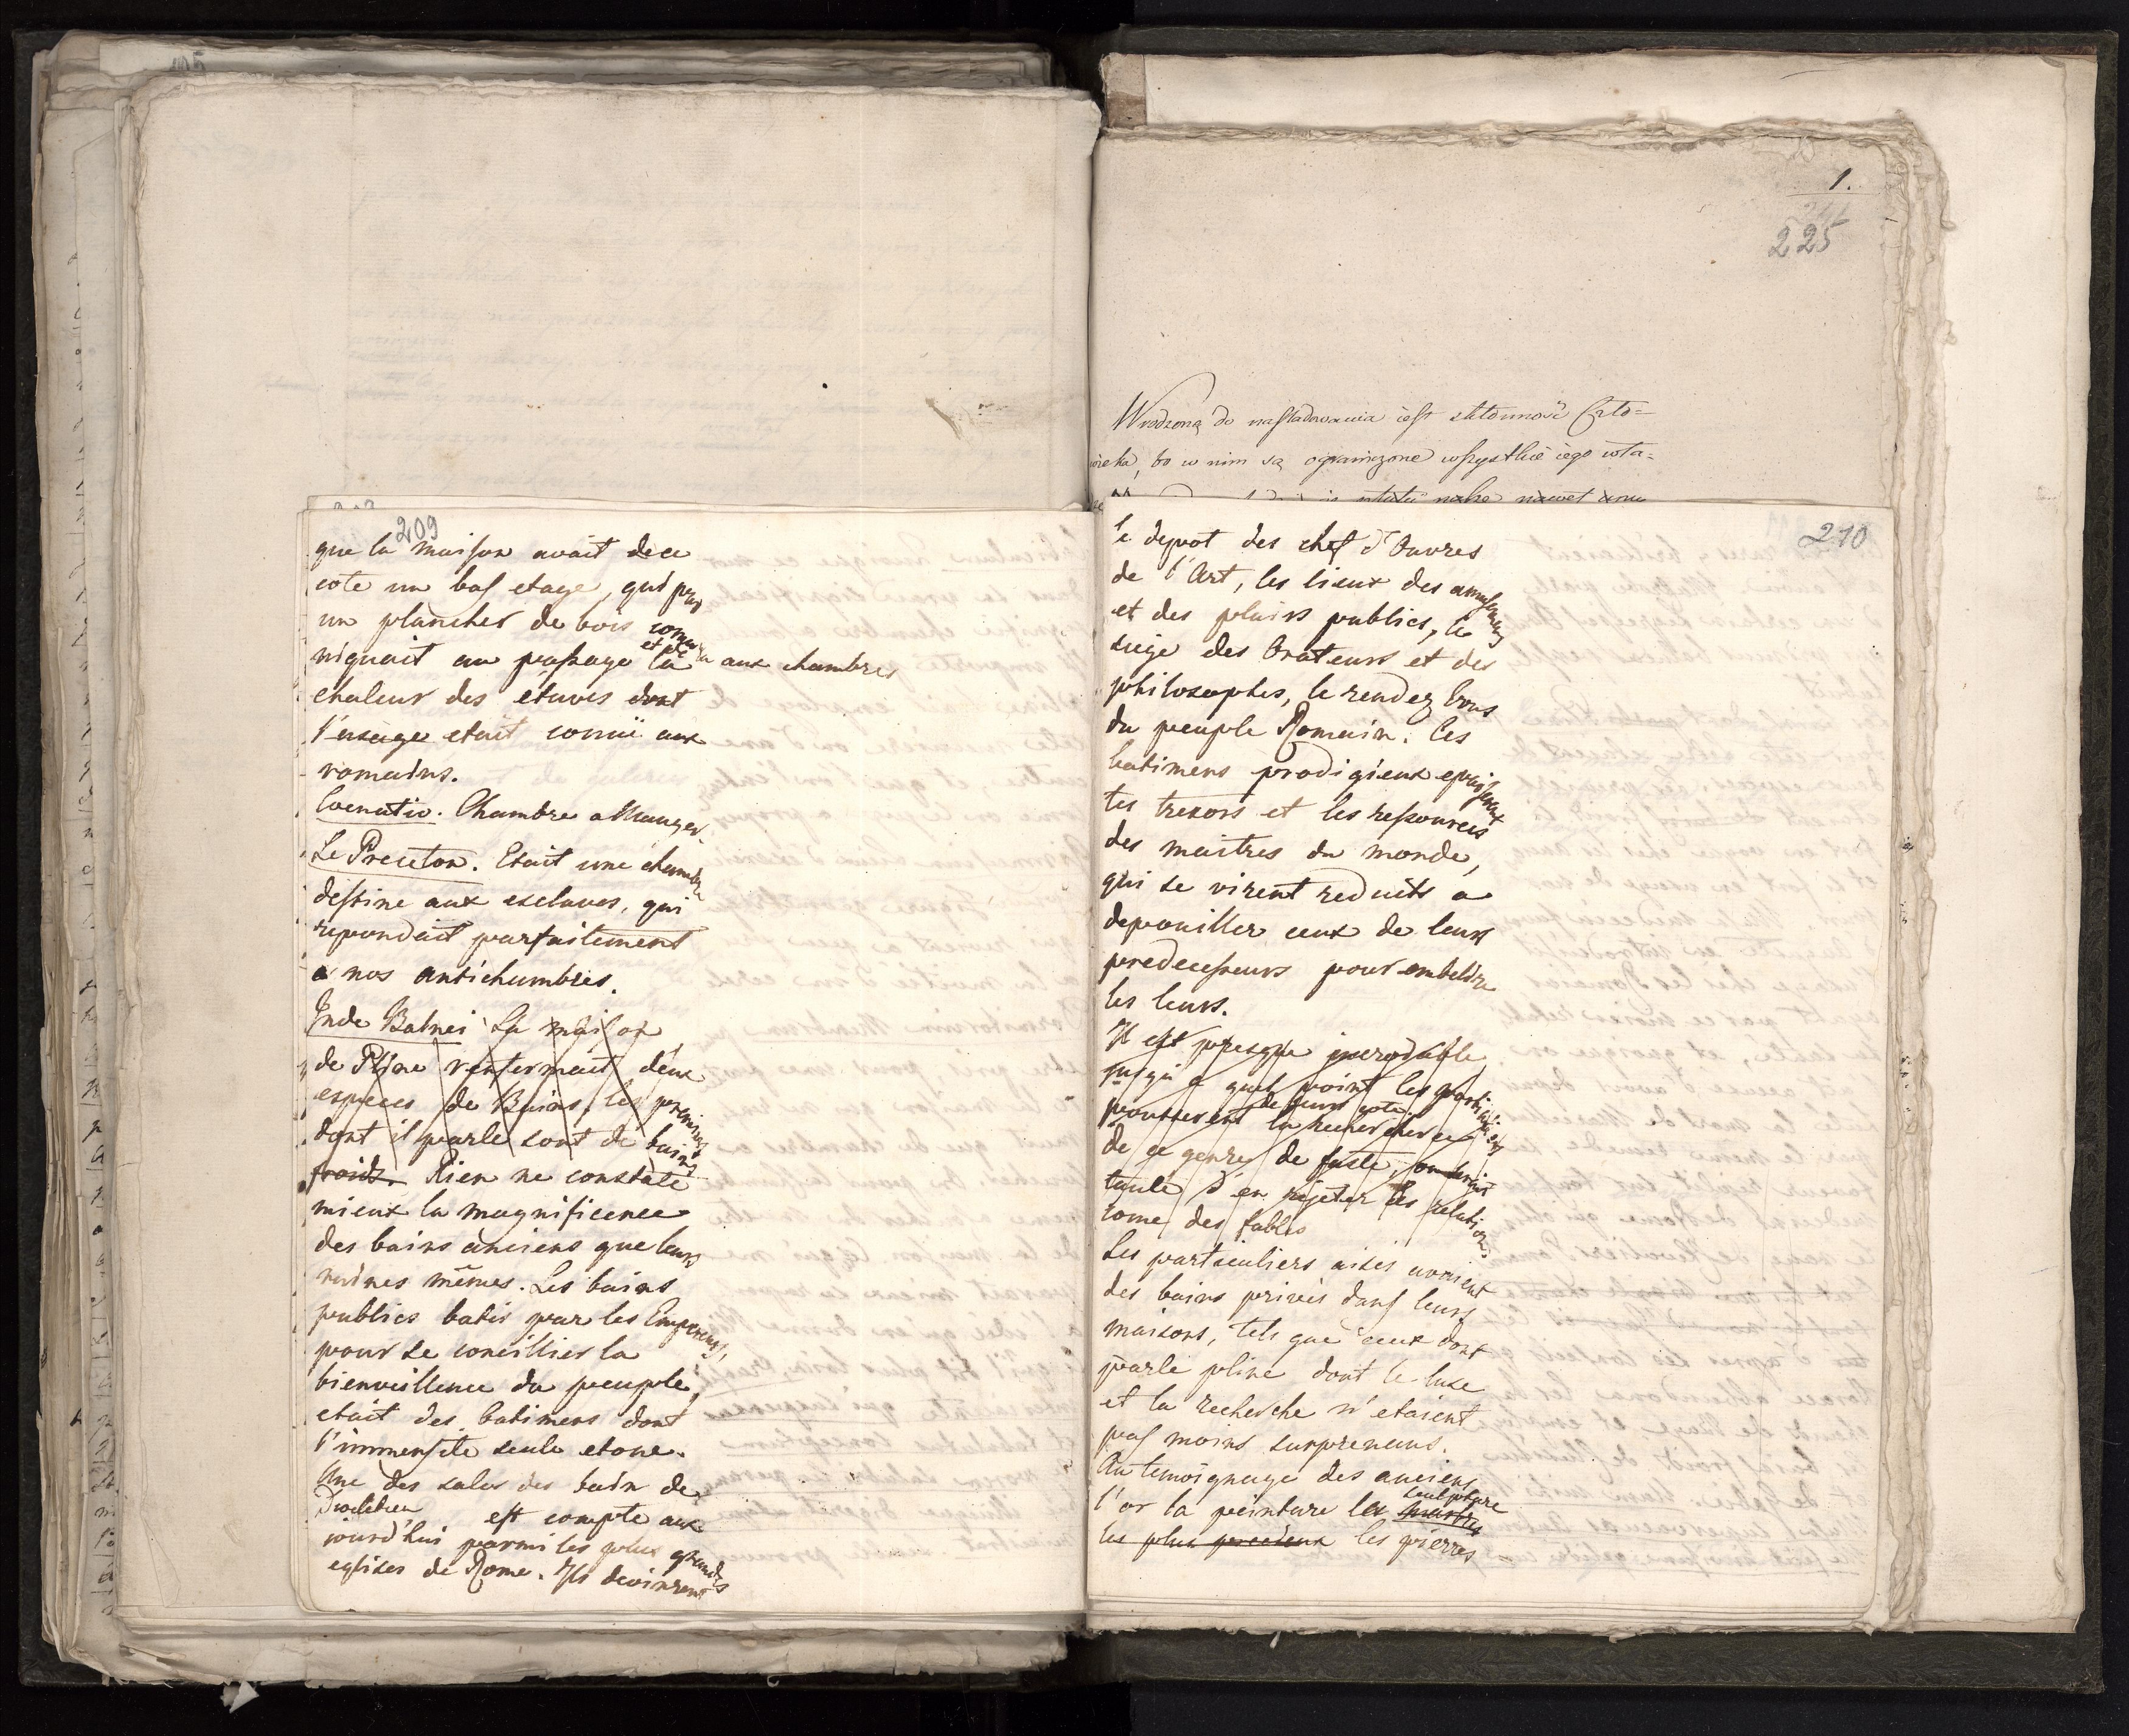 209
que la maison avait de ce
coté un bas etage, qui par
un plancher de bois comu
et de la aux chambres
niquait au passage la
chaleur des etuves dont
l'usage etait connü aux
romains.
Coenatio. Chambre a Manger.
Le Prociton. Etait une chambre
destine aux esclaves, qui
repondait parfaitement
a nos antichambres.
Inde Balnei La maison
de Pline renfermait deux
especes de Bains, les premiers
dont il parle sont de bains
froids. Rien ne constate
mieux la magnificence
des bains anciens que leurs
ruines mêmes. Les bains
publics batis par les Empereurs,
pour se concillier la
bienveillence du peuple,
etait des batimens dont
l'immensite seule etone.
Une des sales des bain de
Diocletien est compte aux
jourd'hui parmi les plus grandes
eglises de Rome. Ils devinrent
1.
225
Wrodzoną do naśladowania iest skłonność Czło=
wieka, bo w nim są ograniczone wszystkie iego wła=
210
le depot des chef d'Ouvres
de l'Art, les lieux des amusemens
et des plaisirs publics, le
siege des Orateurs et des
philosophes, le rendez vous
du peuple Romain. Ces
batimens prodigieux epuiserent
les tresors et les ressources
des maitres du monde,
qui se virent reduits a
depouiller ceux de leurs
predecesseurs pour embelire
les leurs.
Il est presque incroidable
jusqu'a quel point les particuliers
de leurs cote
pousserent la recherche
de ce genre de faste, on serait
tanté d'en rejeter les relations
come des fables
Les particuliers aises avaient
des bains privés dans leurs
maisons, tels que ceux dont
parle pline dont le luxe
et la recherche n'etaient
pas moins surprenans.
Au temoignage des anciens
sculpture
l'or la peinture la marbres
les plus precieux les pierres